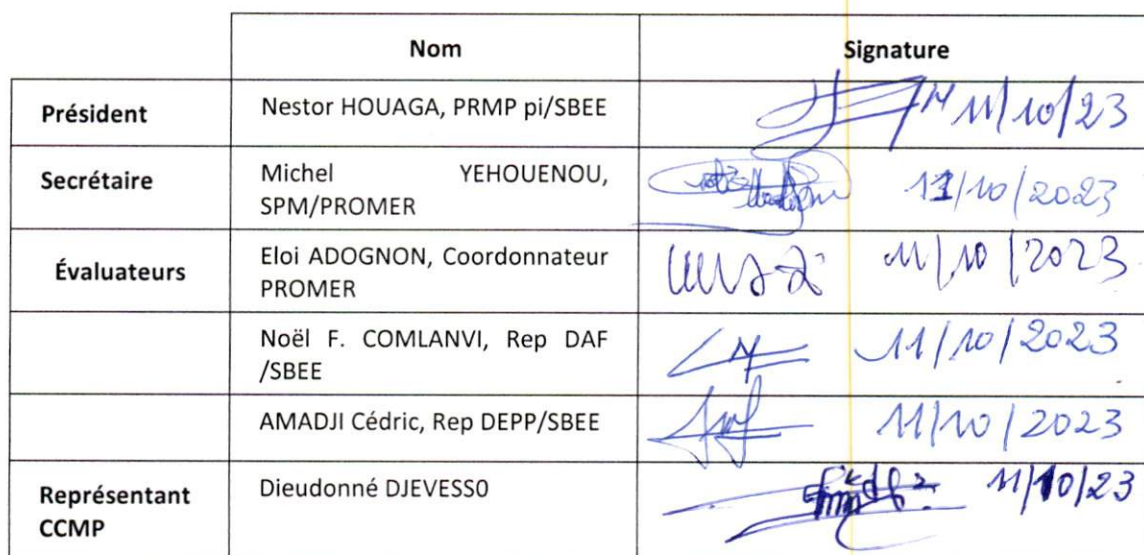 Nom Signature
Président Nestor HOUAGA, PRMP pi/SBEE 11/10/23
Secrétaire Michel YEHOUENOU,
SPM/PROMER 11/10/2023
Évaluateurs Eloi ADOGNON, Coordonnateur
PROMER 11/10/2023
Noël F. COMLANVI, Rep DAF
/SBEE 11/10/2023
AMADJI Cédric, Rep DEPP/SBEE 11/10/2023
Représentant
CCMP Dieudonné DJEVESS0 11/10/23